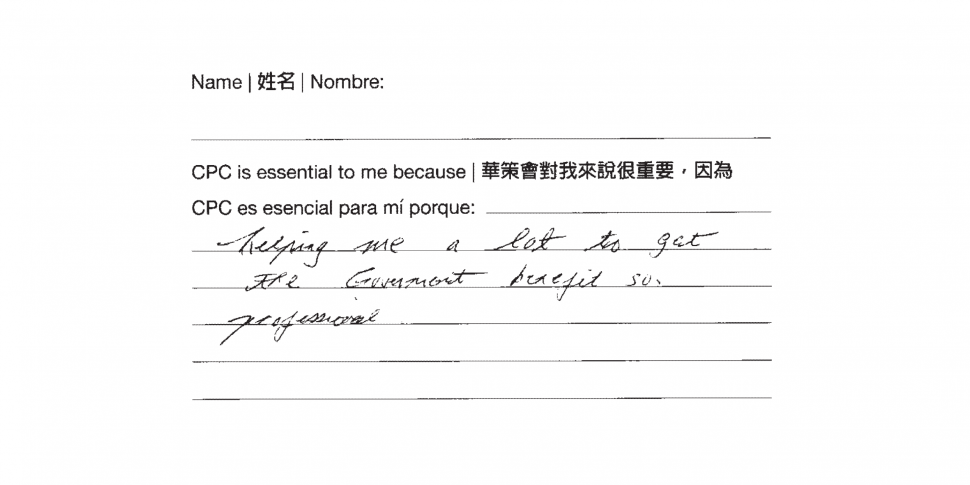 Name | 姓名 | Nombre:
CPC is essential to me because | 華策會對我來說很重要，因為
CPC es esencial para mí porque:
helping me a lot to get
the Goverment benefit so.
professional